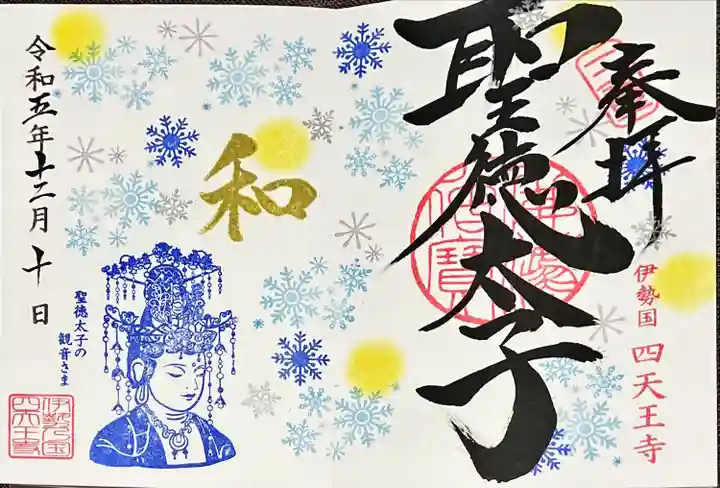 奉拝
聖徳太子
伊勢国 四天王寺
和
令和五年十二月十日
聖徳太子の
観音さま
伊勢乃国
四天王寺